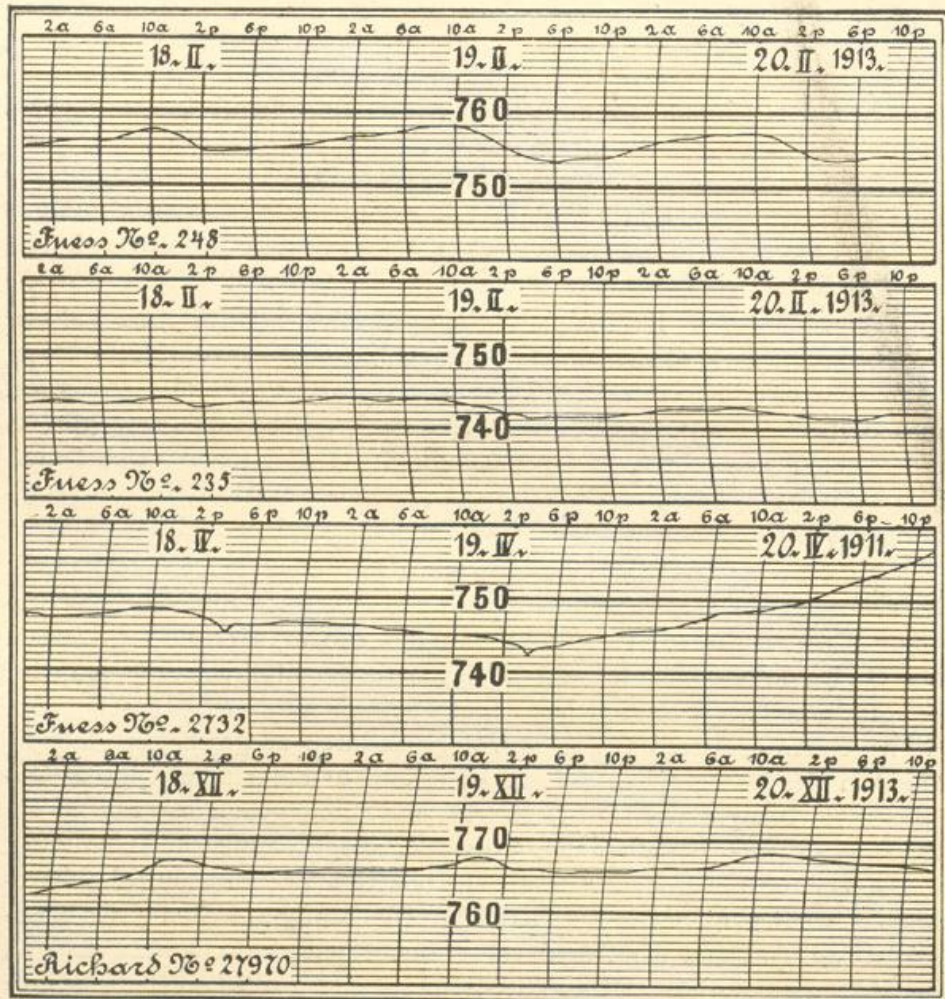 2a 6a 10a 2p 6p 10p 2a 6a 10a 2p 6p 10p 2a 6a 10a 2p 6p 10p
18. II. 19. II. 20. II. 1913.
760
750
Fuess No. 248
2a 6a 10a 2p 6p 10p 2a 6a 10a 2p 6p 10p 2a 6a 10a 2p 6p 10p
18. II. 19. II. 20. II. 1913.
750
740
Fuess No. 235
2a 6a 10a 2p 6p 10p 2a 6a 10a 2p 6p 10p 2a 6a 10a 2p 6p 10p
18. IV. 19. IV. 20. IV. 1911.
750
740
Fuess No. 2732
2a 8a 10a 2p 6p 10p 2a 6a 10a 2p 6p 10p 2a 6a 10a 2p 6p 10p
18. XII. 19. XII. 20. XII. 1913.
770
760
Richard No 27970